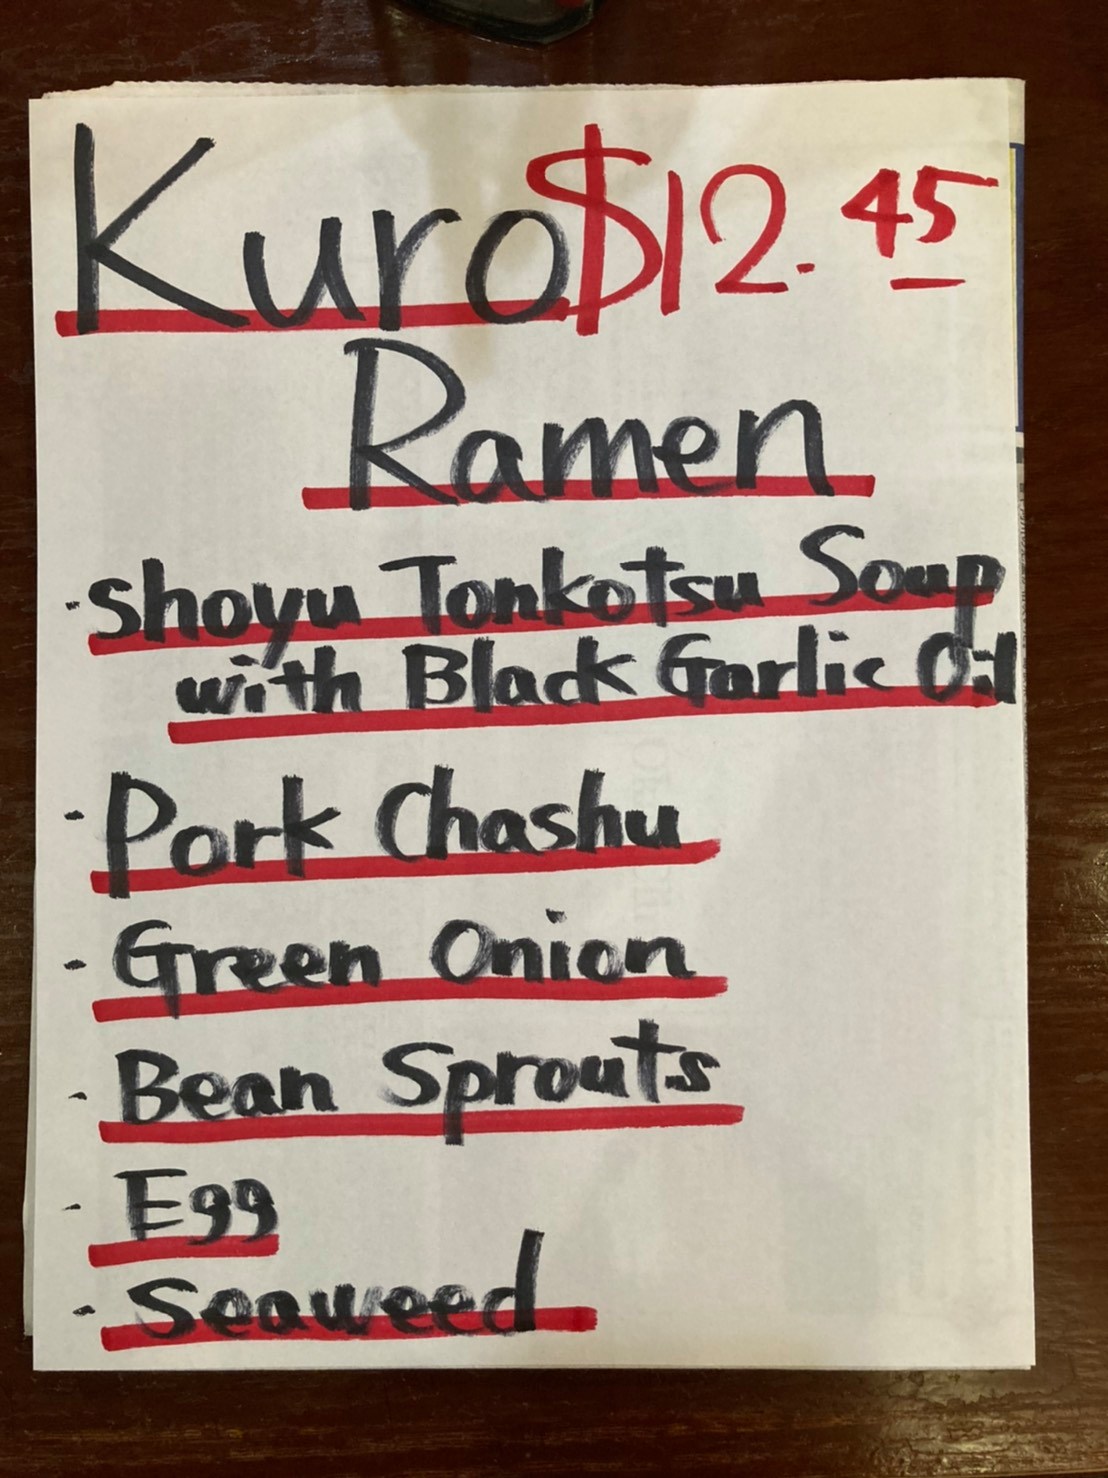 Kuro $12.45
Ramen
· Shoyu Tonkotsu Soup
with Black Garlic Oil
· Pork Chashu
· Green Onion
· Bean Sprouts
· Egg
· Seaweed